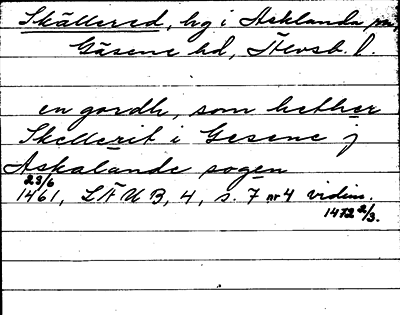 Skällered, hg i Asklanda sn,
Gäsene hd, Älvsb. l.
en gordh, som hether
Skellerit i Gesene j
Askalande sogen
23/6
1461, SÄUB, 4, s. 7 nr 4 vidim.
1472 2/3.